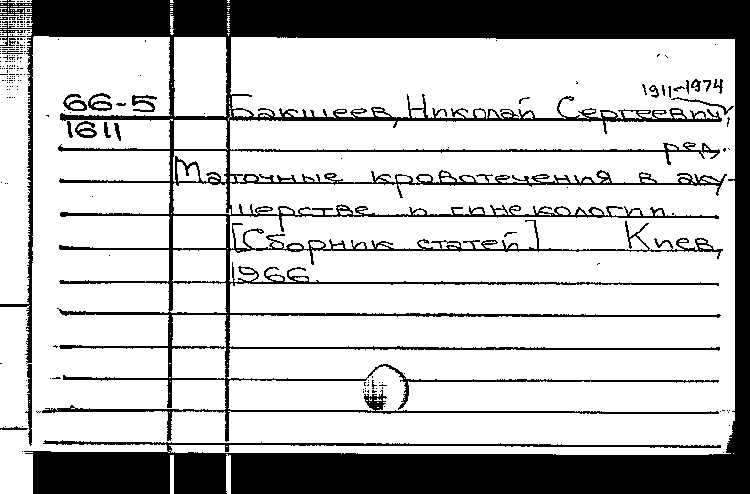 1911-1974
66-5 Бакшеев, Николай Сергеевич,
1611
ред.
Маточные кровотечения в аку-
шерстве и гинекологии.
[Сборник статей]. Киев,
1966.